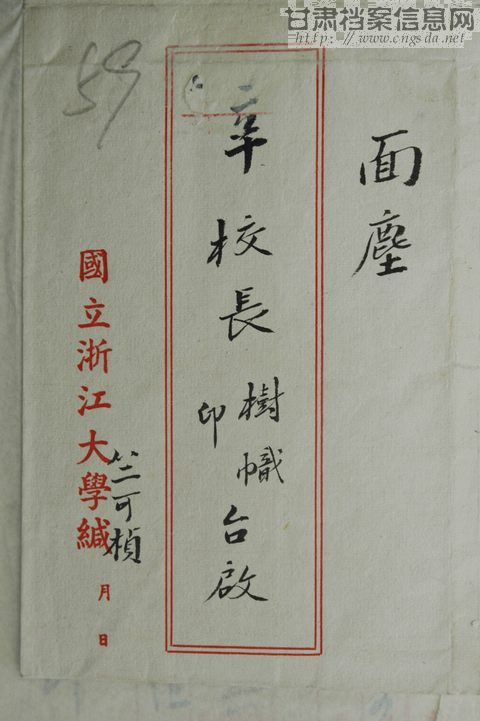 甘肃档案信息网
http://www.cngsda.net
面塵
辛校長樹幟印台啟
國立浙江大學緘
竺可楨
月日
59